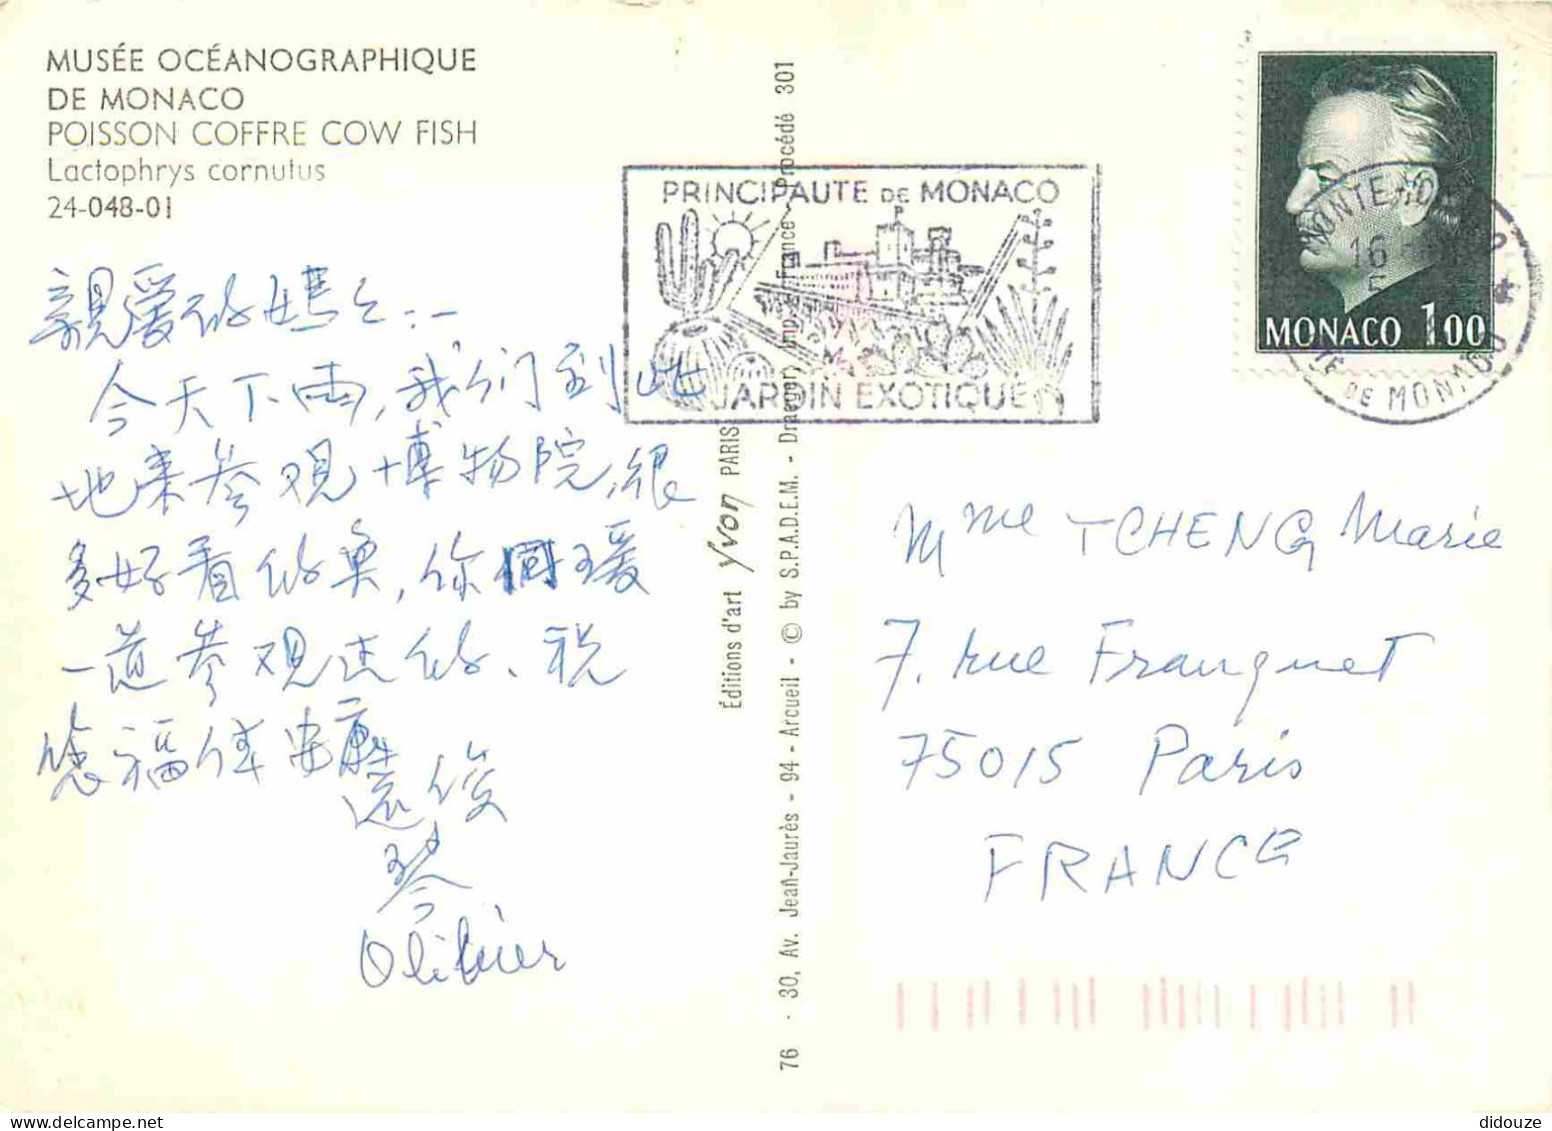 MUSÉE OCÉANOGRAPHIQUE
DE MONACO
POISSON COFFRE COW FISH
Lactophrys cornutus
24-048-01
親愛的媽媽:-
今天下雨,我们到此
地来参观博物院,很
多好看的魚,你同
一道参观过的、祝
福体安康
遠俊
琴
Olivier
Éditions d'art Yvon PARIS
76 · 30, Av. Jean-Jaurès - 94 - Arcueil - © by S.P.A.D.E.M. - Draeger, imp. France - Procédé 301
PRINCIPAUTE DE MONACO
JARDIN EXOTIQUE
MONACO 1.00
16
TE DE MONACO
Mme TCHENG Marie
7. rue Franquet
75015 Paris
FRANCE
didouze